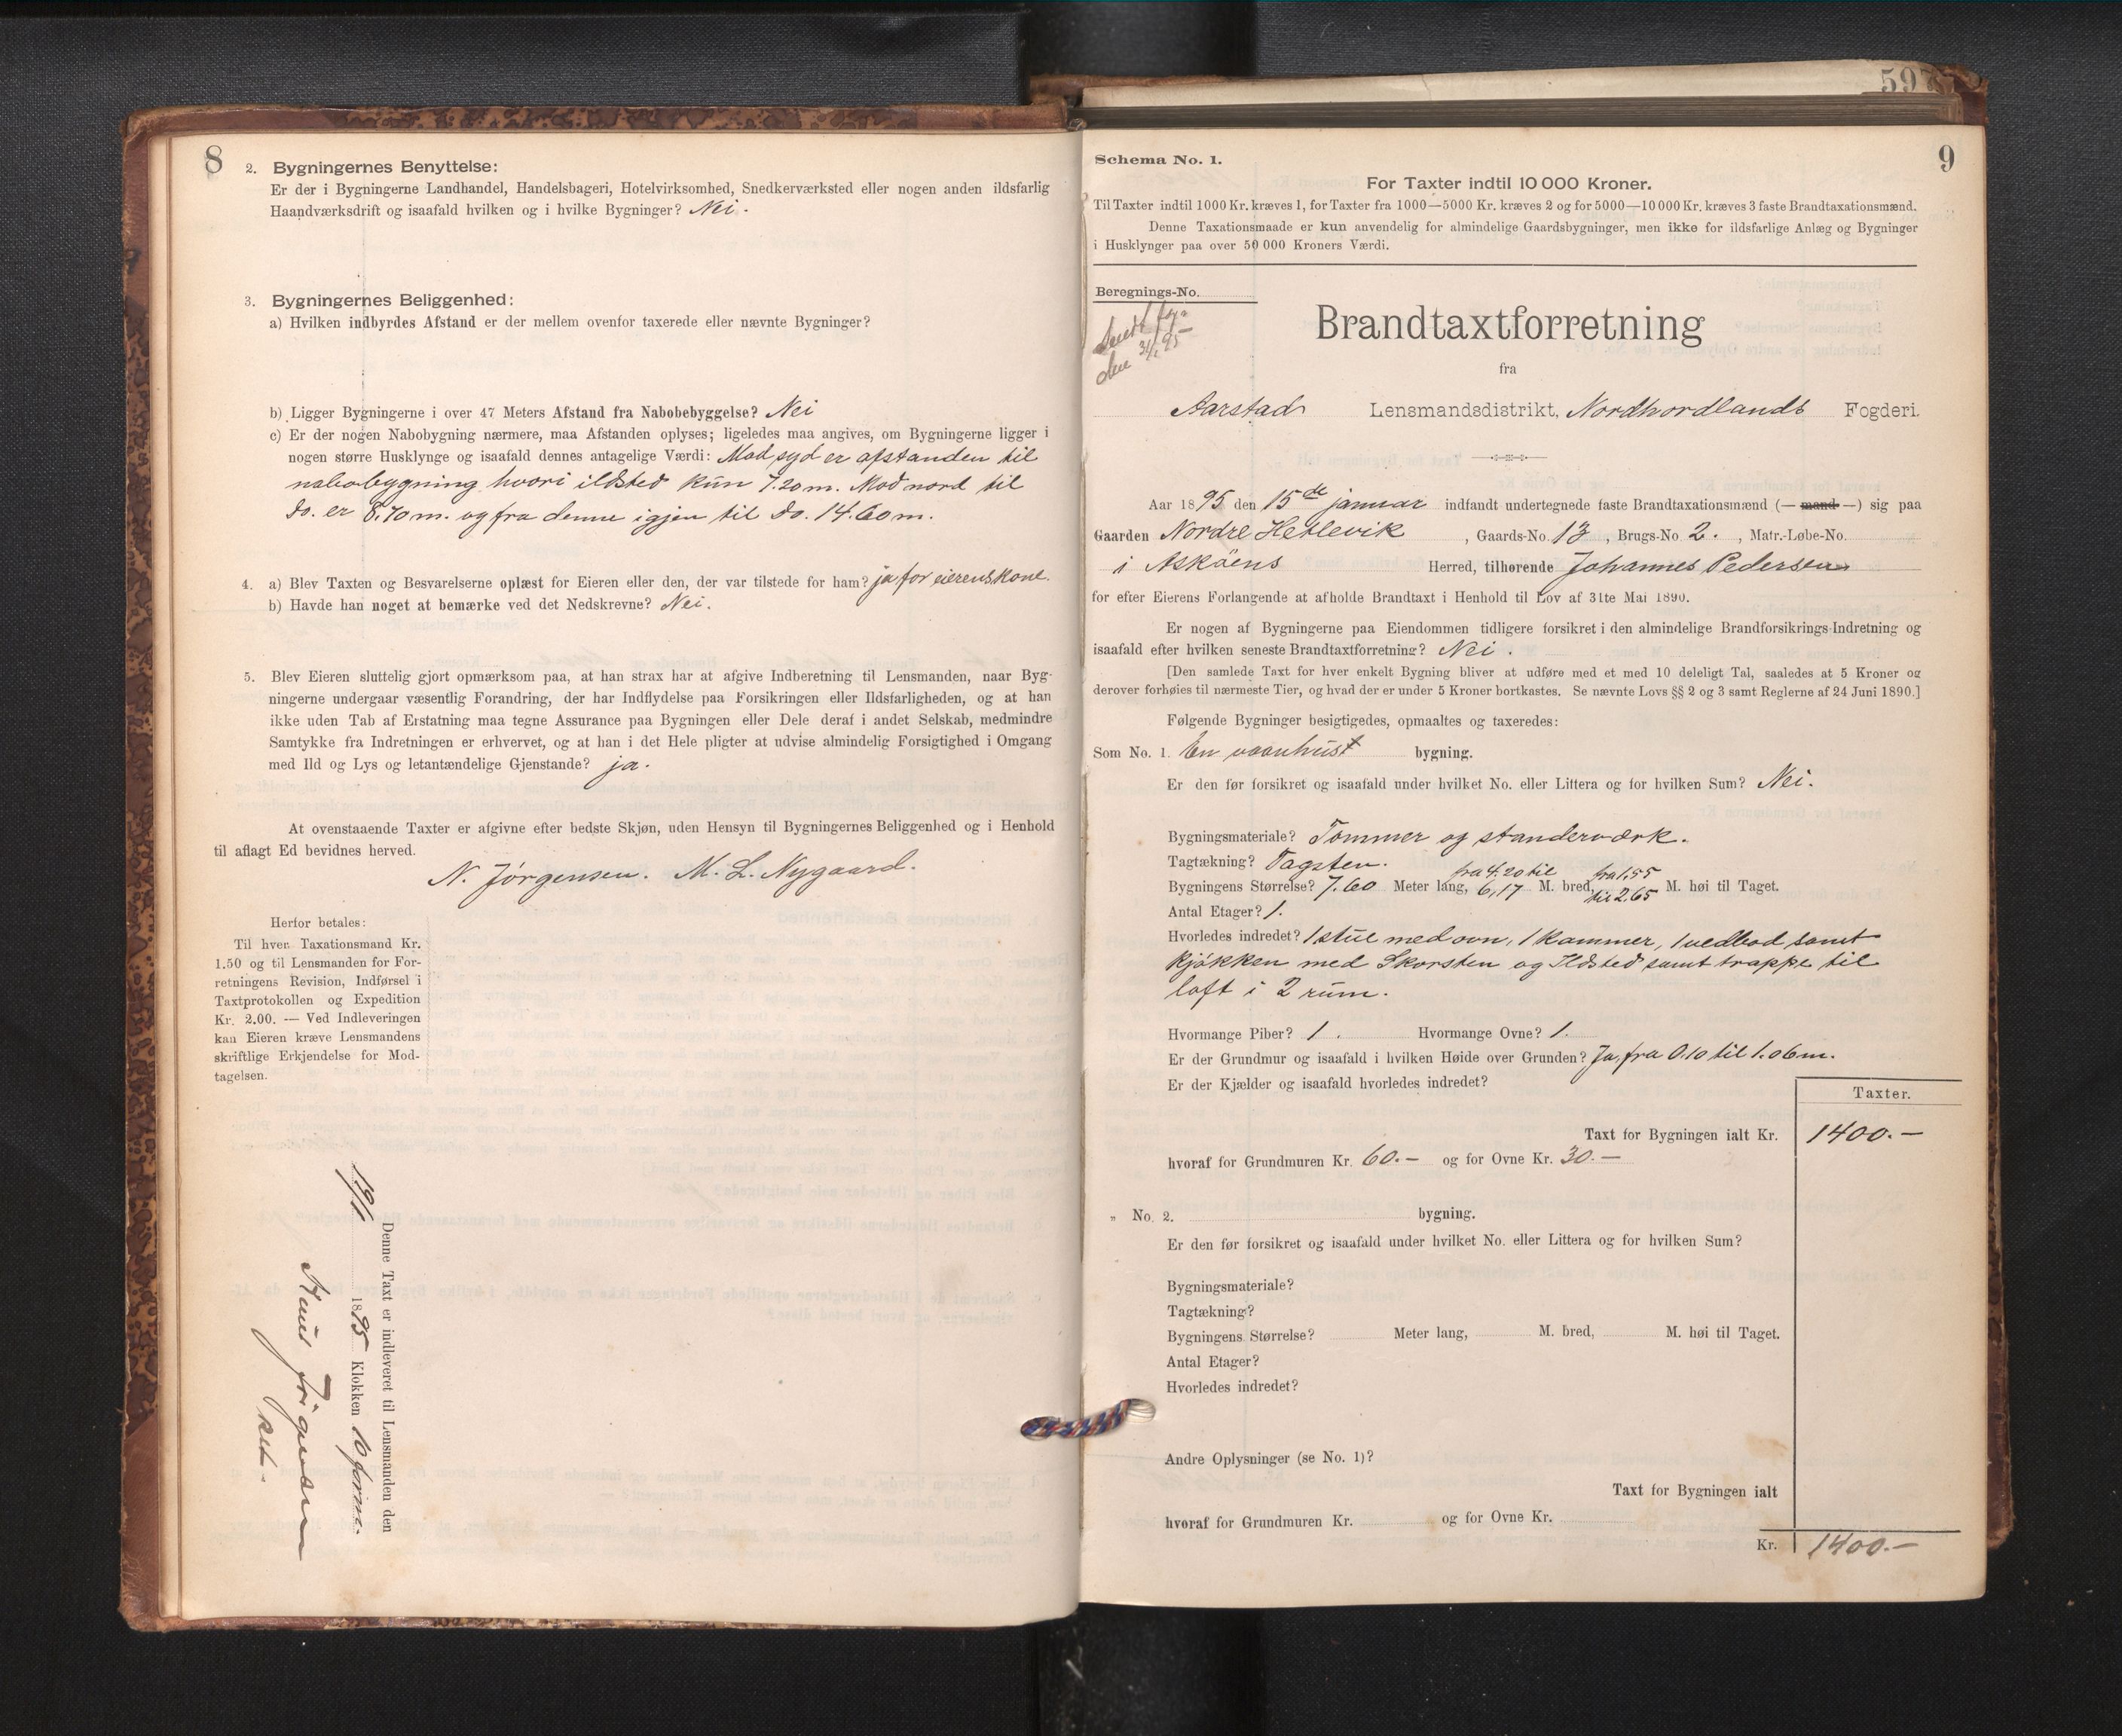 8
2. Bygningernes Benyttelse:
Er der i Bygningerne Landhandel, Handelsbageri, Hotelvirksomhed, Snedkerværksted eller nogen anden ildsfarlig
Haandværksdrift og isaafald hvilken og i hvilke Bygninger? Nei.
3. Bygningernes Beliggenhed:
a) Hvilken indbyrdes Afstand er der mellem ovenfor taxerede eller nævnte Bygninger?
b) Ligger Bygningerne i over 47 Meters Afstand fra Nabobebyggelse? Nei
c) Er der nogen Nabobygning nærmere, maa Afstanden oplyses; ligeledes maa angives, om Bygningerne ligger i
nogen større Husklynge og isaafald dennes antagelige Værdi: Mod syd er afstanden til
nabobygning hvori ildsted kun 7.20 m. Mod nord til
do. er 8,70 m. og fra denne igjen til do. 14.60 m.
4. a) Blev Taxten og Besvarelserne oplæst for Eieren eller den, der var tilstede for ham? ja for eierens kone.
b) Havde han noget at bemærke ved det Nedskrevne? Nei.
5. Blev Eieren sluttelig gjort opmærksom paa, at han strax har at afgive Indberetning til Lensmanden, naar Byg-
ningerne undergaar væsentlig Forandring, der har Indflydelse paa Forsikringen eller Ildsfarligheden, og at han
ikke uden Tab af Erstatning maa tegne Assurance paa Bygningen eller Dele deraf i andet Selskab, medmindre
Samtykke fra Indretningen er erhvervet, og at han i det Hele pligter at udvise almindelig Forsigtighed i Omgang
med Ild og Lys og letantændelige Gjenstande? ja.
At ovenstaaende Taxter er afgivne efter bedste Skjøn, uden Hensyn til Bygningernes Beliggenhed og i Henhold
til aflagt Ed bevidnes herved.
N. Jørgensen. M. L. Nygaard.
Herfor betales:
Til hver Taxationsmand Kr.
1.50 og til Lensmanden for For-
retningens Revision, Indførsel i
Taxtprotokollen og Expedition
Kr. 2.00. — Ved Indleveringen
kan Eieren kræve Lensmandens
skriftlige Erkjendelse for Mod-
tagelsen.
Denne Taxt er indleveret til Lensmanden den
19/1 1895 Klokken 10 form.
Knud Jørgensen
597
9
Schema No. 1.
For Taxter indtil 10 000 Kroner.
Til Taxter indtil 1000 Kr. kræves 1, for Taxter fra 1000—5000 Kr. kræves 2 og for 5000—10 000 Kr. kræves 3 faste Brandtaxationsmænd.
Denne Taxationsmaade er kun anvendelig for almindelige Gaardsbygninger, men ikke for ildsfarlige Anlæg og Bygninger
i Husklynger paa over 50 000 Kroners Værdi.
Beregnings-No.
den 31/1 95
Brandtaxtforretning
fra
Aarstad Lensmandsdistrikt, Nordhordlands Fogderi.
Aar 1895 den 15de januar indfandt undertegnede faste Brandtaxationsmænd (— mand —) sig paa
Gaarden Nordre Hetlevik, Gaards-No. 13, Brugs-No. 2., Matr.-Løbe-No.
i Askøens Herred, tilhørende Johannes Pedersen
for efter Eierens Forlangende at afholde Brandtaxt i Henhold til Lov af 31te Mai 1890.
Er nogen af Bygningerne paa Eiendommen tidligere forsikret i den almindelige Brandforsikrings-Indretning og
isaafald efter hvilken seneste Brandtaxtforretning? Nei.
[Den samlede Taxt for hver enkelt Bygning bliver at udføre med et med 10 deleligt Tal, saaledes at 5 Kroner og
derover forhøies til nærmeste Tier, og hvad der er under 5 Kroner bortkastes. Se nævnte Lovs §§ 2 og 3 samt Reglerne af 24 Juni 1890.]
Følgende Bygninger besigtigedes, opmaaltes og taxeredes:
Som No. 1. En vaanhus bygning.
Er den før forsikret og isaafald under hvilket No. eller Littera og for hvilken Sum? Nei.
Bygningsmateriale? Tømmer og standerværk.
Tagtækning? Tagsten.
Bygningens Størrelse? 7.60 Meter lang, fra 4.20 til 6,17 M. bred, fra 1,55 til 2,65 M. høi til Taget.
Antal Etager? 1.
Hvorledes indredet? 1 stue med ovn, 1 kammer, 1 vedbod samt
kjøkken med Skorsten og Ildsted samt trappe til
loft i 2 rum.
Hvormange Piber? 1. Hvormange Ovne? 1.
Er der Grundmur og isaafald i hvilken Høide over Grunden? Ja, fra 0.10 til 1.06 m.
Er der Kjælder og isaafald hvorledes indredet?
Taxter.
Taxt for Bygningen ialt Kr. 1400.—
hvoraf for Grundmuren Kr. 60.— og for Ovne Kr. 30.—
„ No. 2. bygning.
Er den før forsikret og isaafald under hvilket No. eller Littera og for hvilken Sum?
Bygningsmateriale?
Tagtækning?
Bygningens Størrelse? Meter lang, M. bred, M. høi til Taget.
Antal Etager?
Hvorledes indredet?
Andre Oplysninger (se No. 1)?
Taxt for Bygningen ialt
hvoraf for Grundmuren Kr. og for Ovne Kr.
Kr. 1400.—